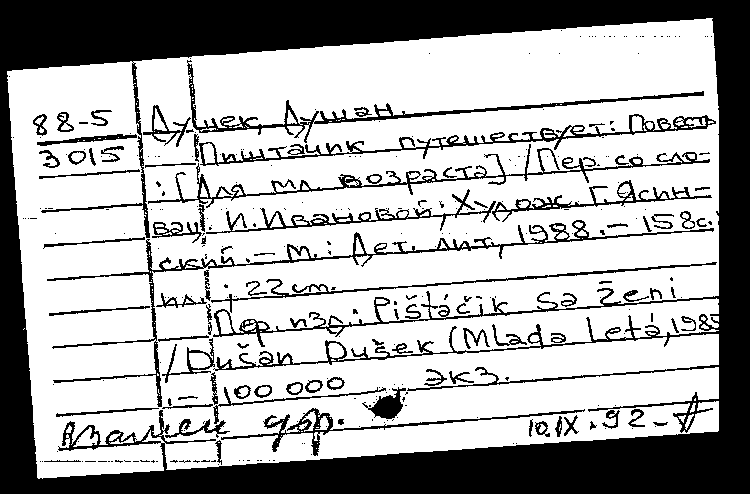 88-5 Душек, Душан.
3015 Пиштачик путешествует: Повесть
: [Для мл. возраста] / Пер. со сло-
вац. И. Ивановой; Худож. Г. Ясин-
ский. - М.: Дет. лит., 1988. - 158с.:
ил.; 22 см.
Пер. изд.: Pištáčik sa žení
/ Dušan Dušek (Mladé letá, 1985
. - 100 000 экз.
Взамен убр. 10.IX.92 -